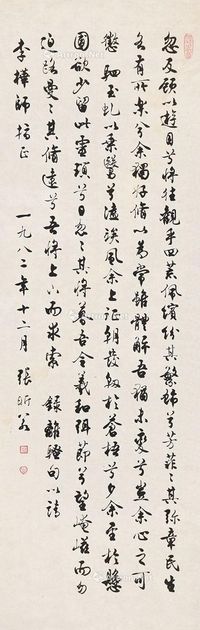 忽反顧以遊目兮將往觀乎四荒佩繽紛其繁飾兮芳菲〻其彌章民生
各有所樂兮余獨好脩以為常雖體解吾猶未變兮豈余心之可
懲駟玉虬以乘鷖兮溘埃風余上征朝發軔於蒼梧兮夕余至於懸
圃欲少留此靈瑣兮日忽〻其將暮吾令羲和弭節兮望崦嵫而勿
迫路曼〻其脩遠兮吾將上下而求索 錄離騷句以請
李樺師指正 一九八二年十二月 張昕若